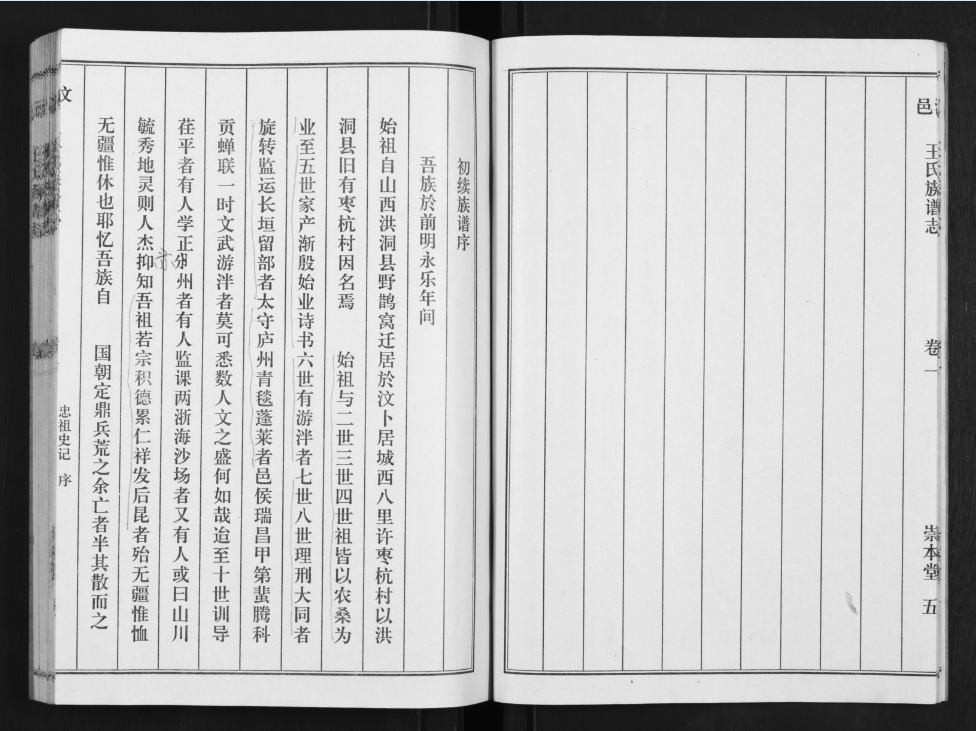 邑 王氏族谱志 卷一 崇本堂 五
初续族谱序
吾族於前明永乐年间
始祖自山西洪洞县野鹊窝迁居於汶卜居城西八里许枣杭村以洪
洞县旧有枣杭村因名焉 始祖与二世三世四世祖皆以农桑为
业至五世家产渐殷始业诗书六世有游泮者七世八世理刑大同者
旋转监运长垣留部者太守庐州青毯蓬莱者邑侯瑞昌甲第蜚腾科
贡蝉联一时文武游泮者莫可悉数人文之盛何如哉迨至十世训导
茌平者有人学正州者有人监课两浙海沙场者又有人或曰山川
毓秀地灵则人杰抑知吾祖若宗积德累仁祥发后昆者殆无疆惟恤
无疆惟休也耶忆吾族自 国朝定鼎兵荒之余亡者半其散而之
汶 忠祖史记 序